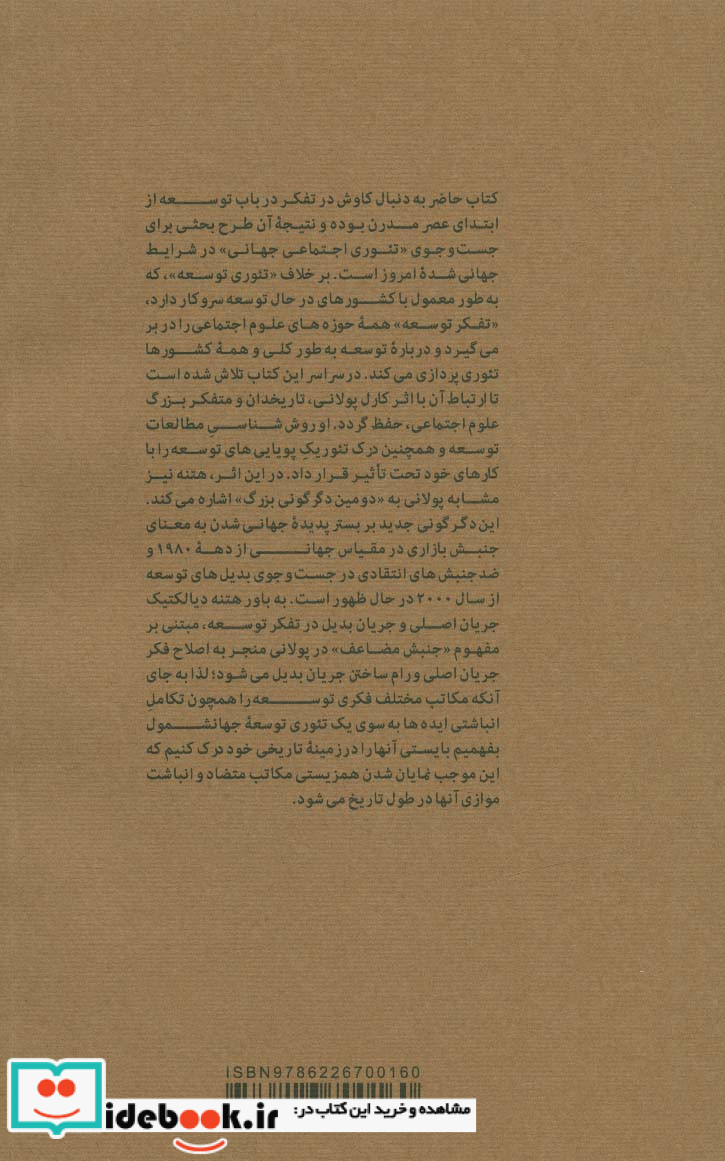 کتاب حاضر به دنبال کاوش در تفکر در باب توسعه از
ابتدای عصر مدرن بوده و نتیجهٔ آن طرح بحثی برای
جست‌وجوی «تئوری اجتماعی جهانی» در شرایط
جهانی شدهٔ امروز است. بر خلاف «تئوری توسعه»، که
به طور معمول با کشورهای در حال توسعه سروکار دارد،
«تفکر توسعه» همهٔ حوزه های علوم اجتماعی را در بر
می گیرد و دربارهٔ توسعه به طور کلی و همهٔ کشورها
تئوری پردازی می کند. در سراسر این کتاب تلاش شده است
تا ارتباط آن با اثر کارل پولانی، تاریخدان و متفکر بزرگ
علوم اجتماعی، حفظ گردد. او روش شناسیِ مطالعات
توسعه و همچنین درک تئوریکِ پویایی های توسعه را با
کارهای خود تحت تأثیر قرار داد. در این اثر، هتنه نیز
مشابه پولانی به «دومین دگرگونی بزرگ» اشاره می کند.
این دگرگونی جدید بر بستر پدیدهٔ جهانی شدن به معنای
جنبش بازاری در مقیاس جهانی از دههٔ ۱۹۸۰ و
ضدجنبش های انتقادی در جست‌وجوی بدیل های توسعه
از سال ۲۰۰۰ در حال ظهور است. به باور هتنه دیالکتیک
جریان اصلی و جریان بدیل در تفکر توسعه، مبتنی بر
مفهوم «جنبش مضاعف» در پولانی منجر به اصلاح فکر
جریان اصلی و رام ساختن جریان بدیل می شود؛ لذا به جای
آنکه مکاتب مختلف فکری توسعه را همچون تکاملِ
انباشتی ایده ها به سوی یک تئوری توسعهٔ جهانشمول
بفهمیم بایستی آنها را در زمینهٔ تاریخی خود درک کنیم که
این موجب نمایان شدن همزیستی مکاتب متضاد و انباشت
موازی آنها در طول تاریخ می شود.
ISBN9786226700160
مشاهده و خرید این کتاب در:
idebook.ir